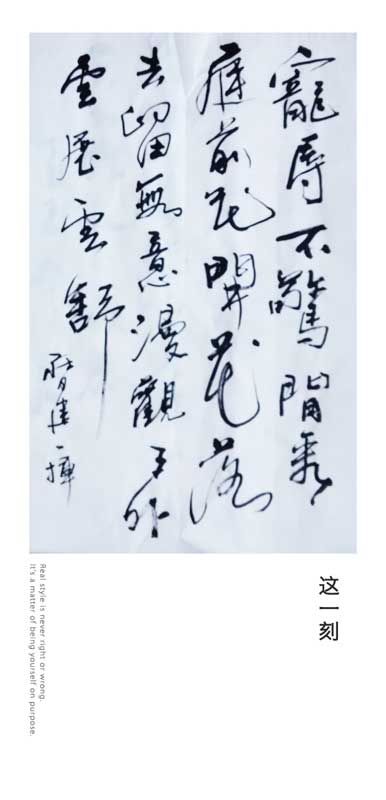 寵辱不驚閒看
庭前花開花落
去留無意漫觀天外
雲展雲舒
这一刻
Real style is never right or wrong.
It's a matter of being yourself on purpose.